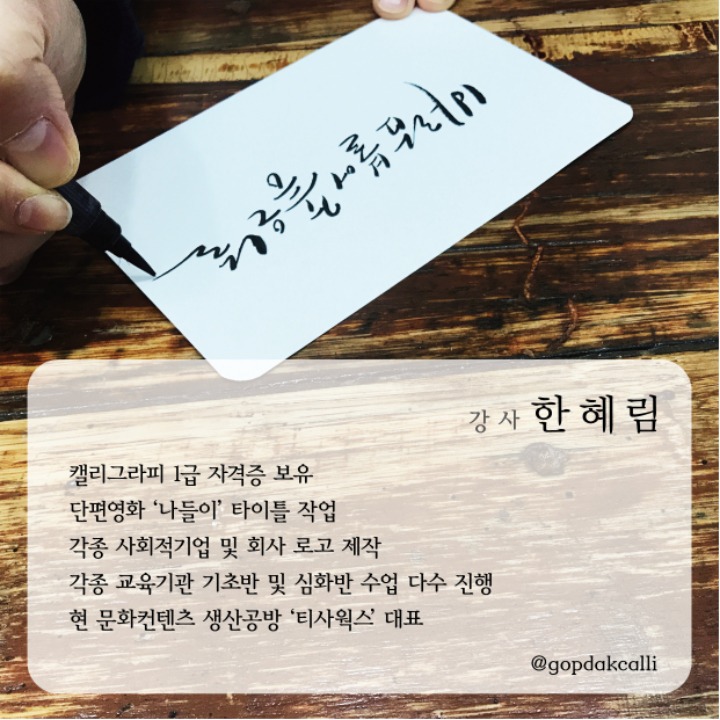 강사 한혜림
캘리그라피 1급 자격증 보유
단편영화 ‘나들이’ 타이틀 작업
각종 사회적기업 및 회사 로고 제작
각종 교육기관 기초반 및 심화반 수업 다수 진행
현 문화컨텐츠 생산공방 ‘티사웍스’ 대표
@gopdakcalli